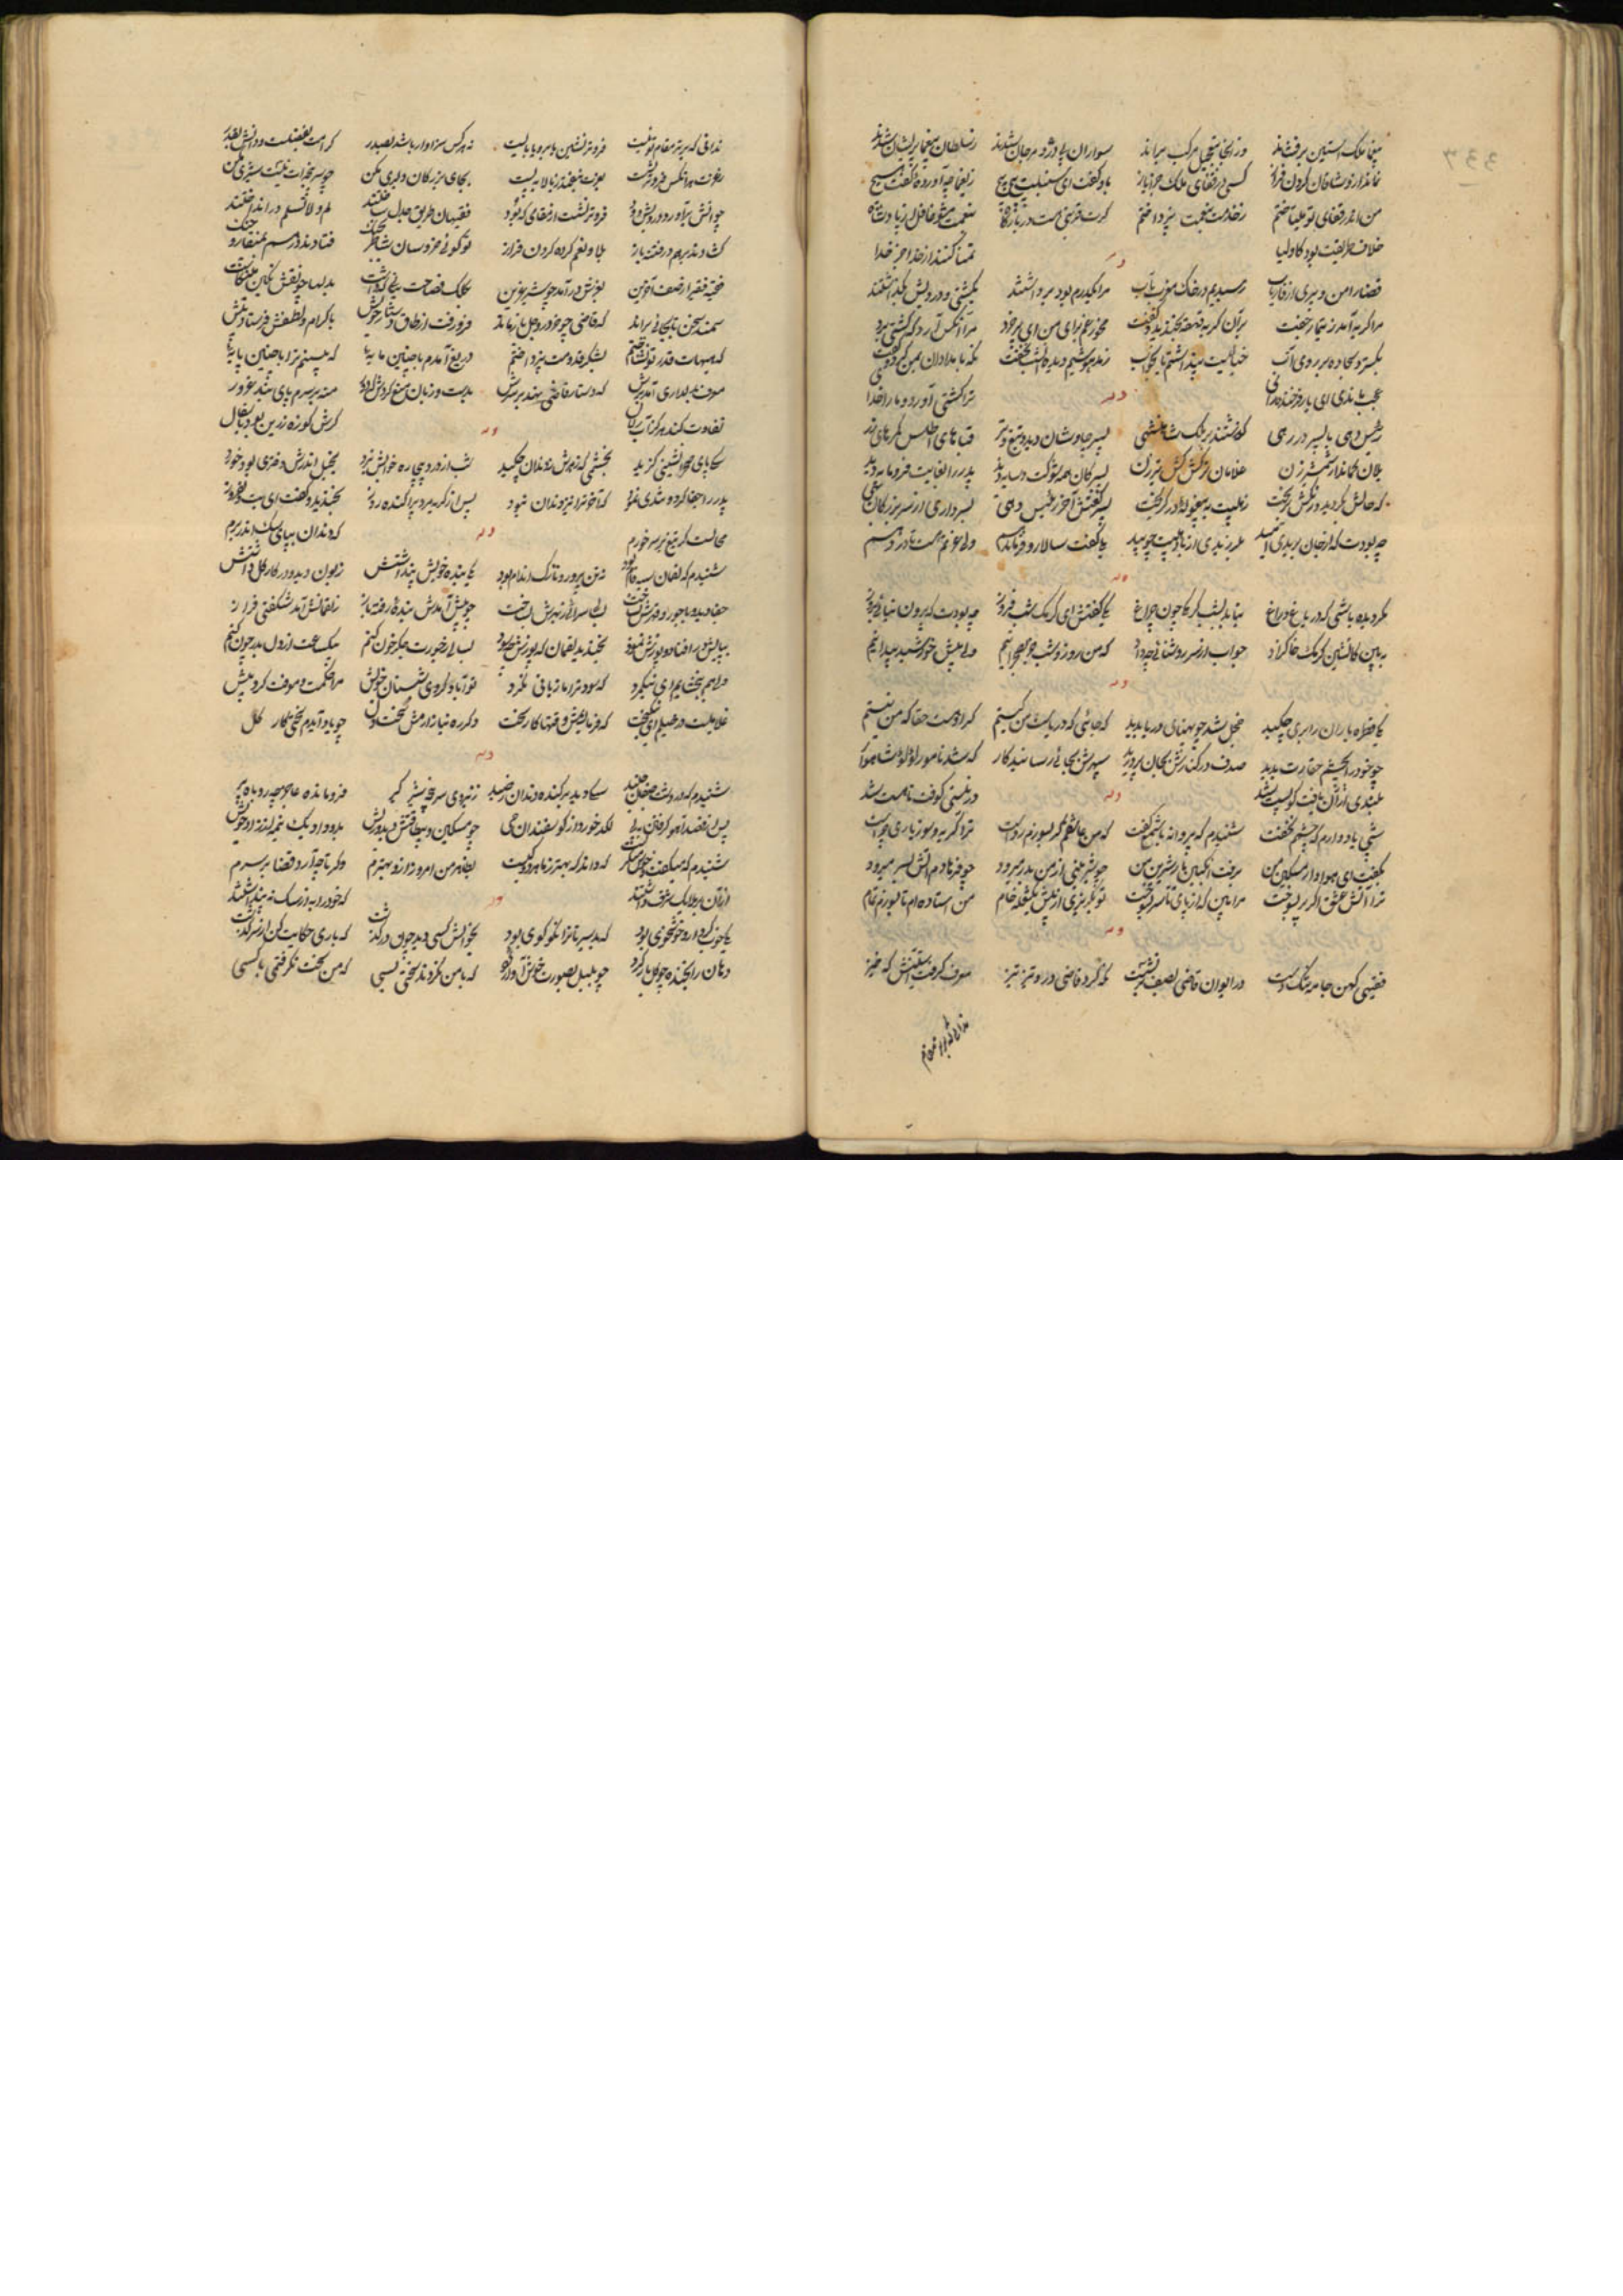 بیغما ملک آستین برفشاند وز انجا بتعجیل مرکب براند سواران پی در و مرجان شدند ز سلطان بیغما پریشان شدند
نماند از وشاقان گردن فراز کسی در قفای ملک جز ایاز بدو گفت ای سنبلت پیچ پیچ ز یغما چه آورده گفت هیچ
من اندر قفای تو میتاختم ز خدمت بنعمت نپرداختم گرت قربتی هست در بارگاه بنعمت مشو غافل از پادشاه
خلاف طریقت بود کاولیا تمنا کنند از خدا جز خدا
وله
قضا را من و پیری از فاریاب رسیدیم در خاک مغرب بآب مرا یکدرم بود برداشتند بکشتی و درویش بگذاشتند
مرا گریه آمد ز تیمار جفت بران گریه قهقه بخندید و گفت مخور غم برای من ای پرخرد مرا آنکس آرد که کشتی برد
بگسترد سجاده بر روی آب خیالیست پنداشتم یا بخواب ز مدهوشیم دیده آنشب نخفت نگه بامدادان بمن کرد و گفت
عجب ماندی ای یار فرخنده رای ترا کشتی آورد و ما را خدا
وله
رئیس دهی با پسر در رهی گذشتند بر قلب شاهنشهی پسر چاوشان دید و تیغ و تبر قباهای اطلس کمرهای زر
یلان کماندار شمشیر زن غلامان ترکش کش تیرزن پسر کان همه شوکت و پایه دید پدر را بغایت فرومایه دید
که حالش بگردید و رنگش بریخت ز هیبت به بیغوله در گریخت پسر گفتش آخر رئیس دهی بسرداری از سر بزرگان مهی
چه بودت که از جان بریدی امید بلرزیدی از باد هیبت چو بید بلی گفت سالار و فرماندهم ولی عزتم هست تا در دهم
وله
مگر دیده باشی که در باغ و راغ بتابد بشب کرمکی چون چراغ یکی گفتش ای کرمک شب فروز چه بودت که بیرون نیائی بروز
ببین کاتشین کرمک خاک زاد جواب از سر روشنائی چه داد که من روز و شب جز بصحرا نیم ولی پیش خورشید پیدا نیم
وله
یکی قطره باران ز ابری چکید خجل شد چو پهنای دریا بدید که جائی که دریاست من کیستم گر او هست حقا که من نیستم
چو خود را بچشم حقارت بدید صدف در کنارش بجان پرورید سپهرش بجائی رسانید کار که شد نامور لؤلؤ شاهوار
بلندی از آن یافت کو پست شد در نیستی کوفت تا هست شد
وله
شبی یاد دارم که چشمم نخفت شنیدم که پروانه با شمع گفت که من عاشقم گر بسوزم رواست ترا گریه و سوز باری چراست
بگفت ای هوادار مسکین من برفت انگبین یار شیرین من چو شیرینی از من بدر میرود چو فرهادم آتش بسر میرود
ترا آتش عشق اگر پر بسوخت مرا بین که از پای تا سر بسوخت تو بگریزی از پیش یک شعله خام من استاده ام تا بسوزم تمام
وله
فقیهی کهن جامه تنگدست در ایوان قاضی بصف برنشست نگه کرد قاضی در و تیز تیز معرف گرفت آستینش که خیز
ندانی که برتر مقام
ندانی که برتر مقام تو نیست فروتر نشین یا برو یا بایست نه هر کس سزاوار باشد بصدر کرامت بفضلست و دانش بقدر
بعزت هر آنکس فروتر نشست بعزت نیفتد ز بالا بپست بجای بزرگان دلیری مکن چو سر پنجه ات نیست شیری مکن
چو آتش برآورد درویش دود فروتر نشست از مقامی که بود فقیهان طریق جدل ساختند لم و لا نسلم در انداختند
گشادند بر هم در فتنه باز بلا و نعم کرده گردن فراز تو گوئی خروسان شاطر بجنگ فتادند در هم بمنقار و چنگ
بغرش در آمد چو شیر عرین بکلک فصاحت بدلها چو نقش نگین
سمند سخن تا بجائی براند که قاضی چو خر در وحل باز ماند فرو رفت از طاق و دستار خویش باکرام و لطفش فرستاد پیش
که هیهات قدر تو نشناختم بشکر قدومت نپرداختم دریغ آیدم با چنین مایه که بینم ترا با چنین پایه
معرف بدلداری آمد برش که دستار قاضی نهد بر سرش بدست و زبان منع کردش که دور منه بر سرم پای بند غرور
تفاوت کند هرگز آب زلال گرش کوزه زرین بود یا سفال
وله
سگی پای صحرا نشینی گزید بخشمی که زهرش ز دندان چکید شب از درد بیچاره خوابش نبرد بخیل اندرش دختری بود خرد
پدر را جفا کرد و تندی نمود که آخر ترا نیز دندان نبود پس از گریه مرد پراکنده روز بخندید و گفت ای
محالست گر تیغ بر سر خورم که دندان بپای سگ اندر برم
وله
شنیدم که لقمان سیه فام بود نه تن پرور و نازک اندام بود یکی بنده خویش پنداشتش زبون دید و در کار گل داشتش
جفا دید و با جور و بسالی سرائی چو پیش آمدش بنده رفته باز ز لقمانش آمد شگفتی فراز
بپایش در افتاد و پوزش نمود بخندید لقمان که پوزش چه سود بسالی ز جورت جگر خون کنم بیکساعت از دل بدر چون کنم
ولی هم ببخشایم ای نیکمرد که سود ترا ما زیانی نکرد تو آباد کردی شبستان خویش مرا حکمت و معرفت گشت بیش
غلامیست در خیلم ای نیکبخت که فرمایمش وقتها کار سخت دگر ره نیازارمش سخت دل چو یاد آیدم سختی کار گل
وله
شنیدم که در دشت صنعا جنید سگی دید برکنده دندان صید ز نیروی سر پنجه شیر گیر فرو مانده عاجز چو روباه پیر
پس از لگد خوردی از گوسفندان حی چو مسکین و بیطاقتش دید و ریش بدو داد یک نیمه از زاد خویش
شنیدم که میگفت که داند که بهتر ز ما هر دو کیست بظاهر من امروز ازو بهترم دگر تا چه آرد قضا بر سرم
از آن بر ملایک شرف داشتند که خود را به از سگ نه پنداشتند
وله
یکی خوب کردار و خوشخوی بود که بد سیرتانرا نکو گوی بود بخوابش کسی دید چون در گذشت که باری حکایت کن از سرگذشت
دهان را بخنده چو گل باز کرد چو بلبل بصوت خوش آغاز کرد که با من نکردند سختی بسی که من سخت نگرفتمی با کسی